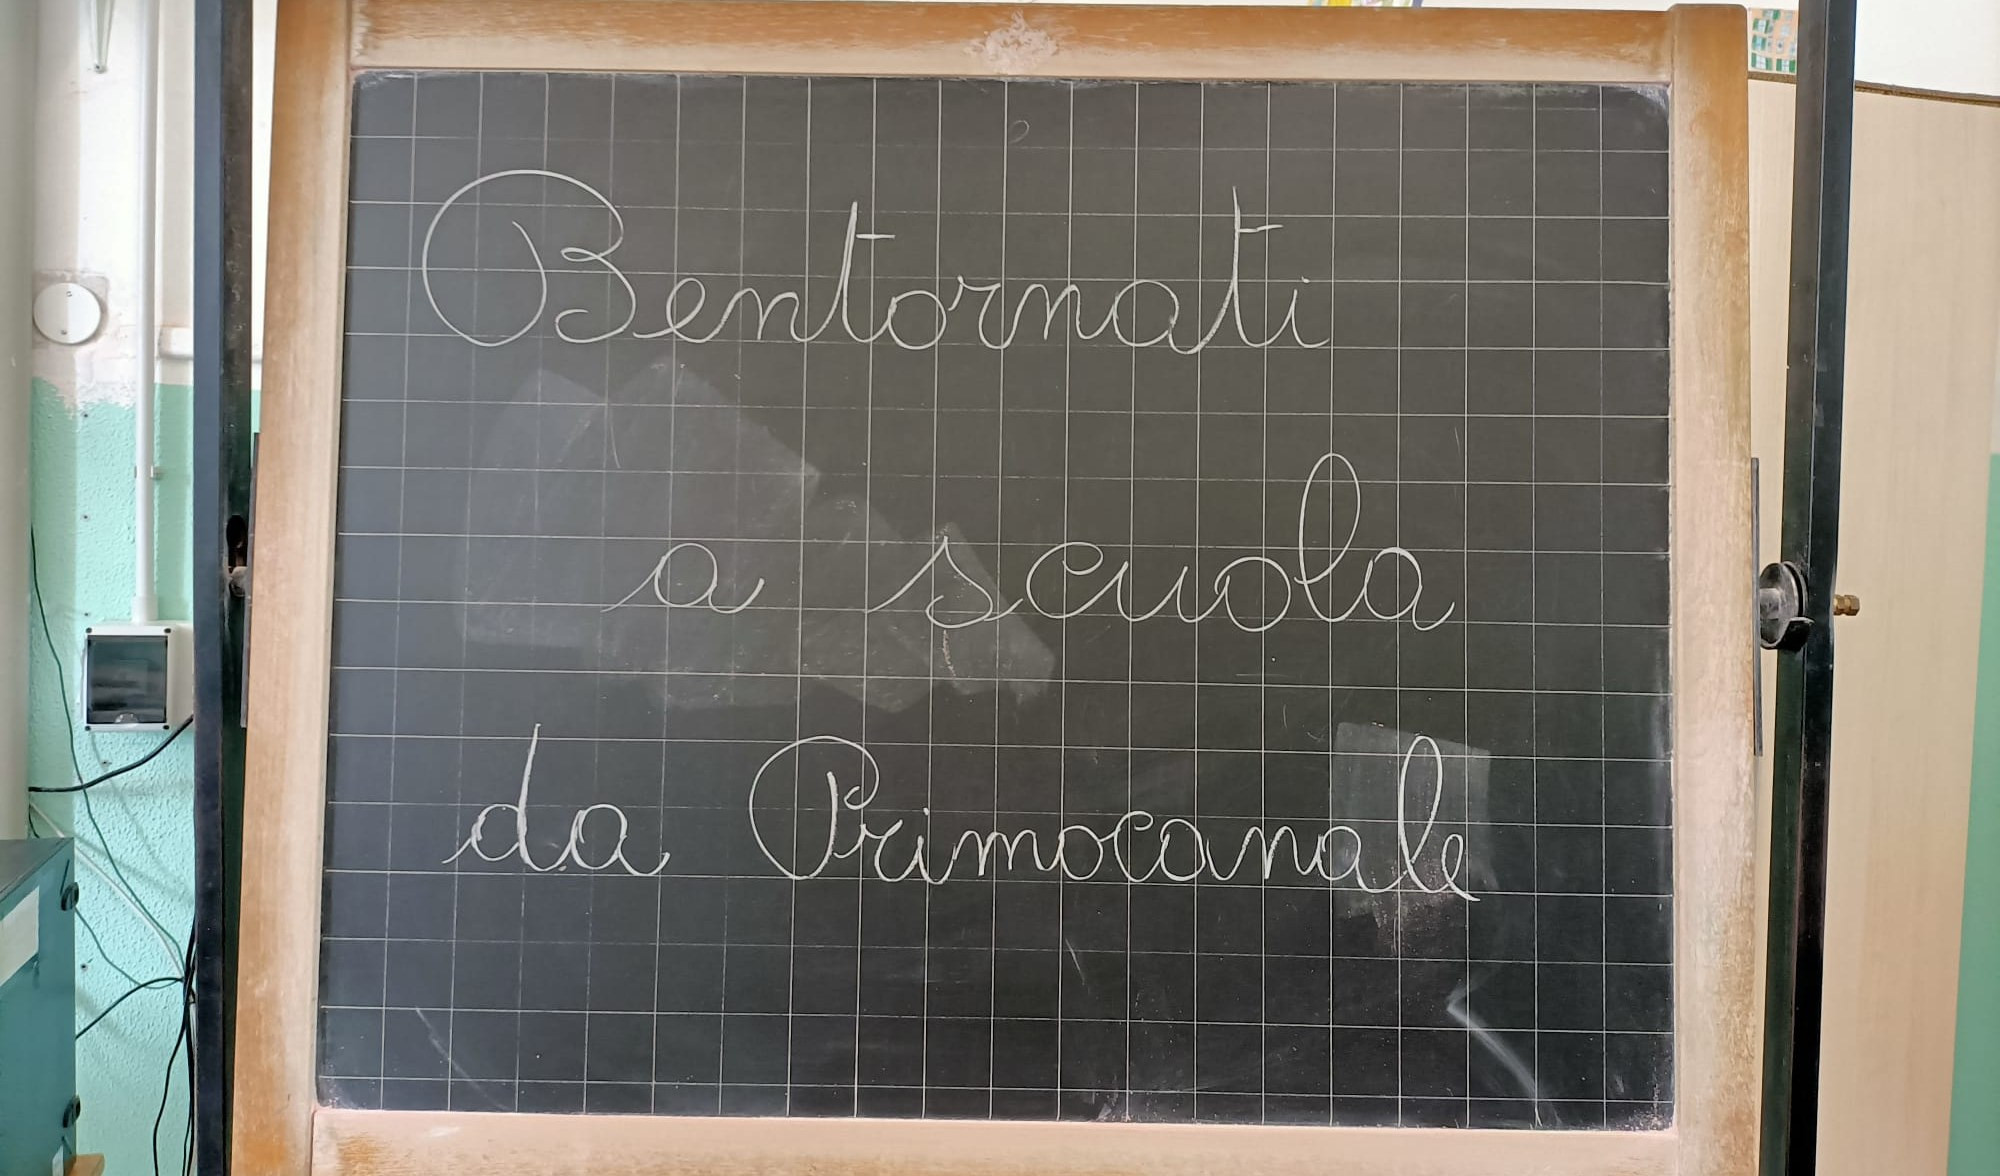 Bentornati
a scuola
da Primocanale